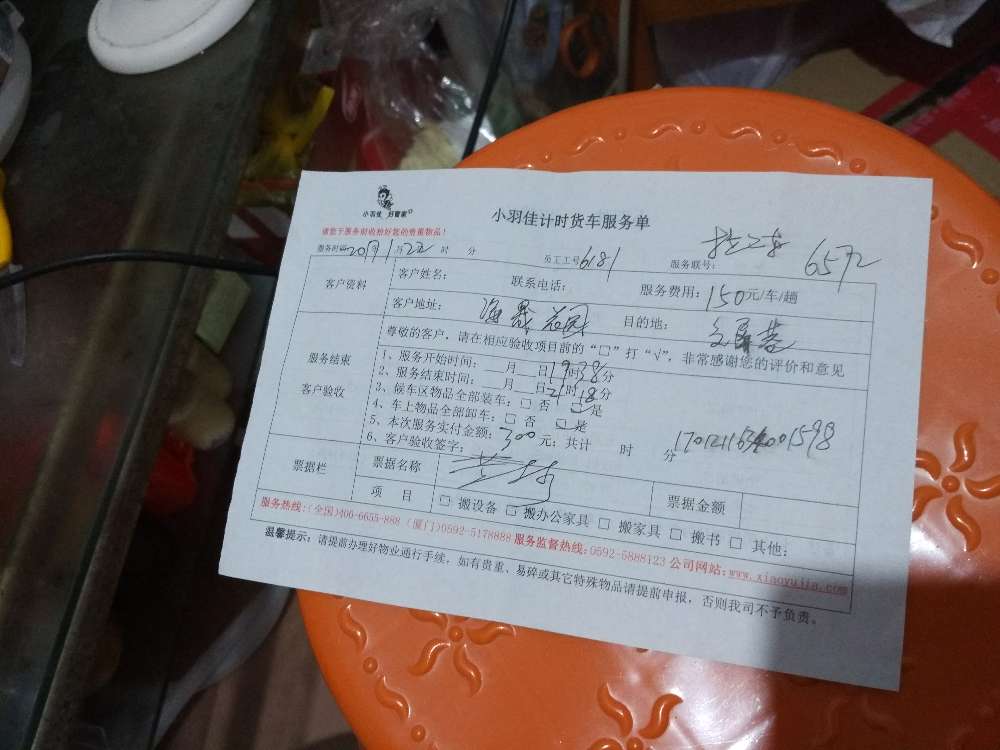 小羽佳 好管家
小羽佳计时货车服务单
请您于服务前收拾好您的贵重物品!
服务时间 月 22 时 分 员工工号 6181 服务联号: 6572
客户资料
客户姓名: 联系电话: 服务费用: 150 元/车/趟
客户地址: 海 花园 目的地:
服务结束
客户验收
尊敬的客户, 请在相应验收项目前的“□”打“√”, 非常感谢您的评价和意见
1、服务开始时间: 月 日 19 时 38 分
2、服务结束时间: 月 日 21 时 18 分
3、候车区物品全部装车: □ 否 □ 是
4、车上物品全部卸车: □ 否 □ 是
5、本次服务实付金额: 300 元; 共计 时 分
6、客户验收签字:
票据栏
票据名称 票据金额
项 目 □ 搬设备 □ 搬办公家具 □ 搬家具 □ 搬书 □ 其他:
服务热线: (全国)400-6655-888 (厦门)0592-5178888 服务监督热线: 0592-5888123 公司网站: www.xiaoyujia.com
温馨提示: 请提前办理好物业通行手续, 如有贵重、易碎或其它特殊物品请提前申报, 否则我司不予负责。